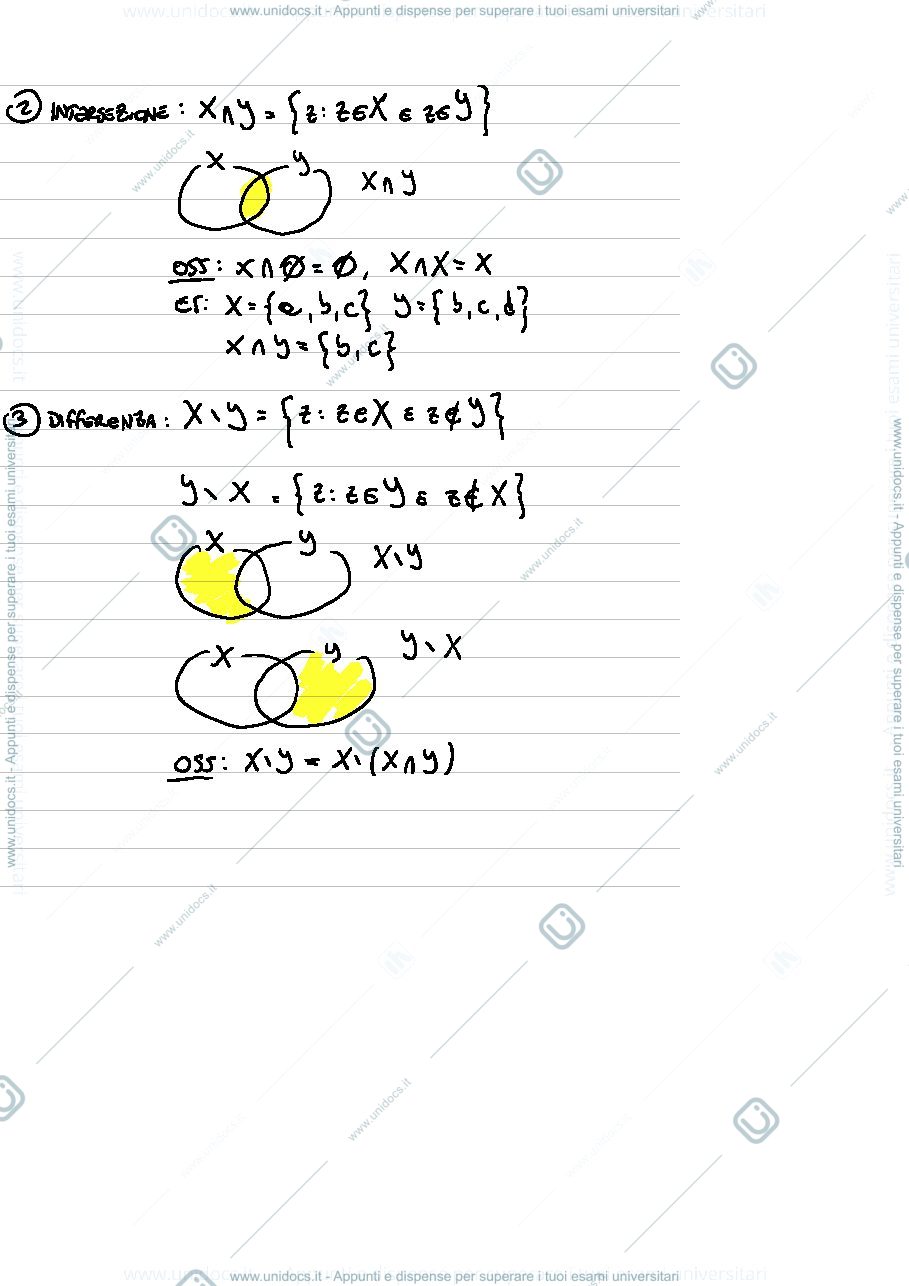 www.unidocs.it - Appunti e dispense per superare i tuoi esami universitari
② INTERSEZIONE: X∩Y = {z: z∈X e z∈Y}
X Y X∩Y
OSS: X∩∅=∅, X∩X=X
ES: X={a,b,c} Y={b,c,d}
X∩Y={b,c}
③ DIFFERENZA: X\Y = {z: z∈X e z∉Y}
Y\X = {z: z∈Y e z∉X}
X Y X\Y
X Y Y\X
OSS: X\Y = X\(X∩Y)
www.unidocs.it - Appunti e dispense per superare i tuoi esami universitari
www.unidocs.it - Appunti e dispense per superare i tuoi esami universitari
www.unidocs.it
www.unidocs.it
www.unidocs.it
www.unidocs.it
www.unidocs.it
www.unidocs.it
www.unidocs.it - Appunti e dispense per superare i tuoi esami universitari